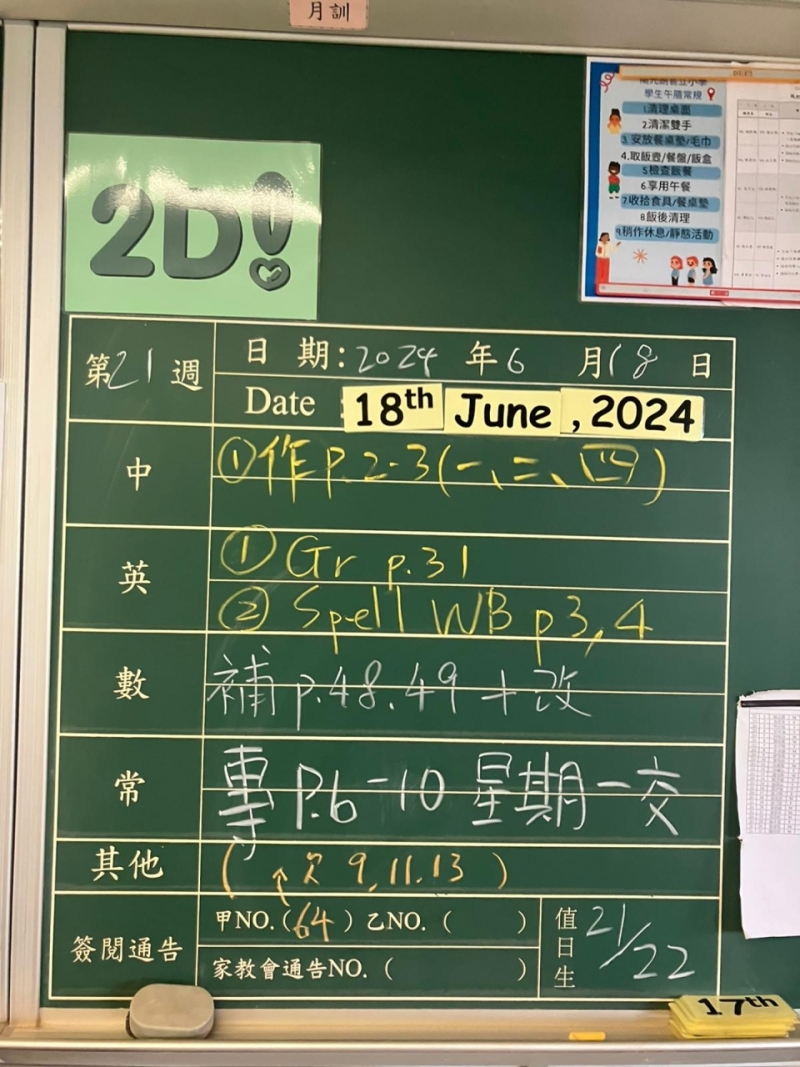 月訓
2D!
學生午膳常規
1.清理桌面
2.清潔雙手
3.安放餐桌墊/毛巾
4.取飯壺/餐盤/飯盒
5.檢查飯餐
6.享用午餐
7.收拾食具/餐桌墊
8.飯後清理
9.稍作休息/靜態活動
第21週
日期:2024年6月18日
Date 18th June, 2024
中
①作P.2-3(一、二、四)
英
① Gr p.31
② Spell WB p3,4
數
補p.48.49+改
常
專P.6-10 星期一交
其他
(↑欠 9,11.13)
簽閱通告
甲NO.(64)乙NO.( )
家教會通告NO.( )
值日生
21/22
17th